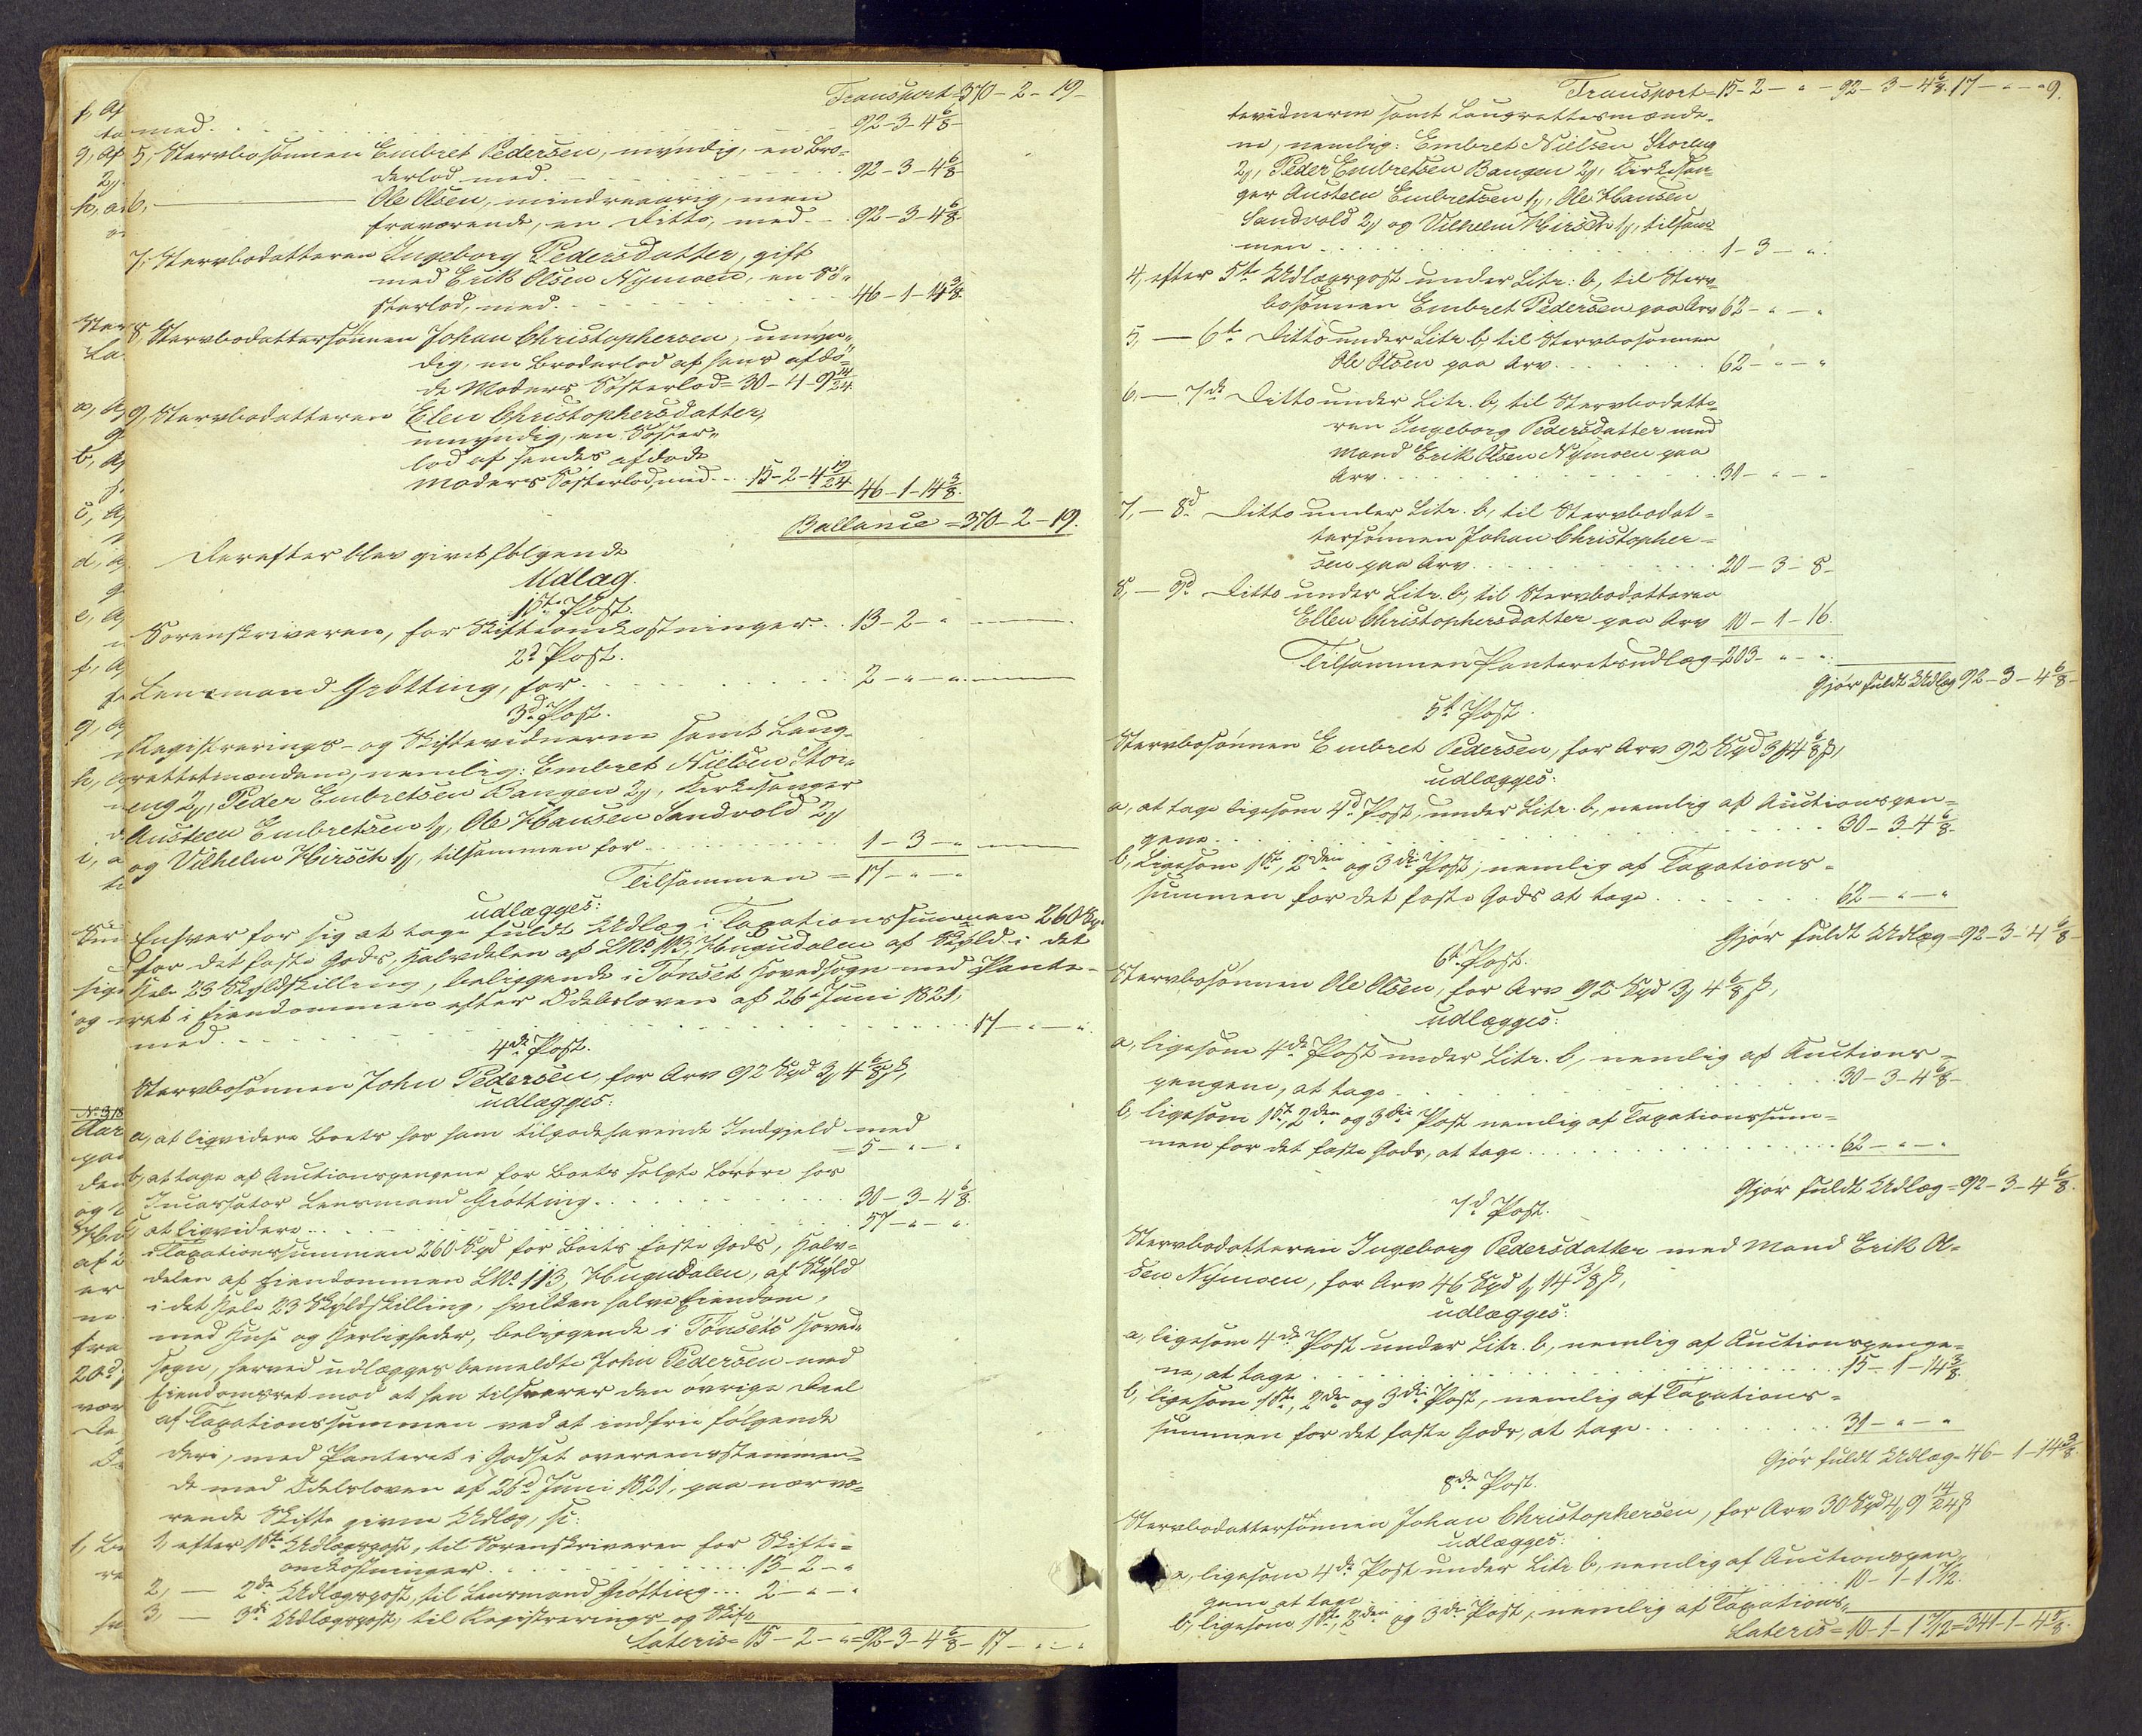 Transport = 370 - 2 - 19 -
med . . . 92 - 3 - 4 6/8 -
5, Stervbosønnen Embret Pedersen, myndig, en Bro=
derlod med . . . 92 - 3 - 4 6/8
6, ——— Ole Olsen, mindreaarig, men
fraværende, en Ditto, med - . 92 - 3 - 4 6/8
7, Stervbodatteren Ingeborg Pedersdatter, gift
med Erik Olsen Nymoen, en Sø=
sterlod, med . . . 46 - 1 - 14 3/8
8, Stervbodattersønnen Johan Christophersen, umyn=
dig, en Broderlod af hans afdø=
de Moders Søsterlod = 30 - 4 - 9 14/24
9, Stervbodatteren Elen Christophersdatter,
umyndig, en Søster=
lod af hendes afdøde
Moders Søsterlod, med . . 15 - 2 - 4 19/24 46 - 1 - 14 3/8
Ballance = 370 - 2 - 19.
Derefter blev givet følgende
Udlæg.
1ste Post.
Sorenskriveren, for Skifteomkostninger . . 13 - 2 - "
2d Post.
Lensmand Grøtting, for . . . 2 - " - "
3de Post.
Registrerings- og Skiftevidnerne samt Laug=
rettesmændene, nemlig: Embret Nielsen Stor=
eng 2, Peder Embretsen Bangen 2, Kirkesanger
Austeen Embretsen 1, Ole Hansen Sandvold 2
og Vilhelm Hirsch 1, tilsammen for . . . 1 - 3 - "
Tilsammen = 17 - " - "
udlægges:
Enhver for sig at tage fuldt Udlæg i Taxationssummen 260 Spd
for det faste Gods, Halvdelen af LNo 113, Hugudalen af Skyld i det
Hele 23 Skyldskilling, beliggende i Tønset Hovedsogn med Pante=
ret i Eiendommen efter Odelsloven af 26 Juni 1821,
med . . . 17 - " - "
4de Post.
Stervbosønnen John Pedersen, for Arv 92 Spd 3, 4 6/8 ß,
udlægges:
a, at liqvidere Boets hos ham tilgodehavende Indgjeld med
= 5 - " - "
b, at tage af Auctionspengene for Boets solgte Løsøre hos
Incassator Lensmand Grøtting . . . 30 - 3 - 4 6/8
c, at liqvidere . . . 57 - " - "
i Taxationssummen 260 Spd for Boets faste Gods, Halv=
delen af Eiendommen LNo 113, Hugudalen, af Skyld
i det Hele 23 Skyldskilling, hvilken halve Eiendom,
med Huse og Herligheder, beliggende i Tønsets Hoved=
sogn, herved udlægges bemeldte John Pedersen med
Eiendomsret mod at han tilsvarer den øvrige Deel
af Taxationssummen ved at indfrie følgende
deri, med Panteret i Godset overeensstemmen=
de med Odelsloven af 26d Juni 1821, paa nærvæ=
rende Skifte givne Udlæg, sc:
1, efter 1ste Udlægspost, til Sorenskriveren for Skifte=
omkostninger . . . 13 - 2 - "
2, — 2de Udlægspost, til Lensmand Grøtting . . . 2 - " - "
3, — 3de Udlægspost, til Registrerings- og Skif=
Lateris = 15 - 2 - " = 92 - 3 - 4 6/8 - 17 - " - "
Transport = 15 - 2 - " - 92 - 3 - 4 6/8 17 - " - " 9.
tevidnerne samt Laugrettesmænde=
ne, nemlig: Embret Nielsen Storeng
2, Peder Embretsen Bangen 2, Kirkesan=
ger Austeen Embretsen 1, Ole Hansen
Sandvold 2 og Vilhelm Hirsch 1, tilsam=
men . . . 1 - 3 - "
4, efter 5te Udlægspost under Litr: b, til Sterv=
bosønnen Embret Pedersen paa Arv 62 - " - "
5, — 6te Ditto under Litr. b, til Stervbosønnen
Ole Olsen paa Arv . . . 62 - " - "
6, — 7de Ditto under Litr. b, til Stervbodatte=
ren Ingeborg Pedersdatter med
Mand Erik Olsen Nymoen paa
Arv . . . 31 - " - "
7, — 8d Ditto under Litr. b, til Stervbodat=
tersønnen Johan Christopher=
sen paa Arv . . . 20 - 3 - 8 -
8, — 9d Ditto under Litr. b, til Stervbodatteren
Ellen Christophersdatter paa Arv 10 - 1 - 16.
Tilsammen Panteretsudlæg = 203 - " - "
Gjør fuldt Udlæg 92 - 3 - 4 6/8 -
5te Post.
Stervbosønnen Embret Pedersen, for Arv 92 Spd 3, 4 6/8 ß,
udlægges:
a, at tage ligesom 4d Post, under Litr. b, nemlig af Auctionspen=
gene . . . 30 - 3 - 4 6/8
b, Ligesom 1ste, 2den og 3die Post, nemlig af Taxations=
summen for det faste Gods at tage . . . 62 - " - "
Gjør fuldt Udlæg = 92 - 3 - 4 6/8 -
6te Post.
Stervbosønnen Ole Olsen, for Arv 92 Spd 3, 4 6/8 ß,
udlægges:
a, ligesom 4de Post under Litr. b, nemlig af Auctions=
pengene, at tage . . . 30 - 3 - 4 6/8 -
b, ligesom 1ste, 2den og 3die Post nemlig af Taxationssum=
men for det faste Gods, at tage . . . 62 - " - "
Gjør fuldt Udlæg = 92 - 3 - 4 6/8.
7d Post.
Stervbodatteren Ingeborg Pedersdatter med Mand Erik Ol=
sen Nymoen, for Arv 46 Spd 1, 14 3/8 ß,
udlægges:
a, ligesom 4de Post under Litr. b, nemlig af Auctionspenge=
ne, at tage . . . 15 - 1 - 14 3/8
b, ligesom 1ste, 2den og 3die Post, nemlig af Taxations=
summen for det faste Gods, at tage . . . 31 - " - "
Gjør fuldt Udlæg = 46 - 1 - 14 3/8
8de Post.
Stervbodattersønnen Johan Christophersen, for Arv 30 Spd 4, 9 14/24 ß
udlægges:
a, ligesom 4de Post under Litr b, nemlig af Auctionspen=
gene at tage . . . 10 - 1 - 1 7/12.
b, ligesom 1ste, 2den og 3die Post, nemlig af Taxations=
Lateris = 10 - 1 - 1 7/12 = 341 - 1 - 4 5/8.